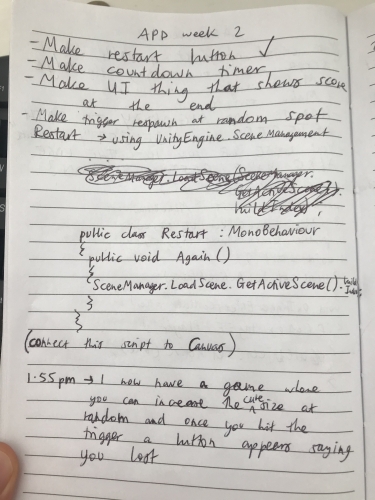 APD week 2
- Make restart button ✓
- Make countdown timer
- Make UI thing that shows score
at the end
- Make trigger respawn at random spot
Restart → using UnityEngine.SceneManagement
SceneManager.LoadScene(SceneManager.
GetActiveScene().
buildIndex,
public class Restart : MonoBehaviour
{
public void Again()
{
SceneManager.LoadScene.GetActiveScene().build
Index);
}
}
(connect this script to Canvas)
1.55pm → I now have a game where
you can increase the cube size at
random and once you hit the
trigger a button appears saying
you lost